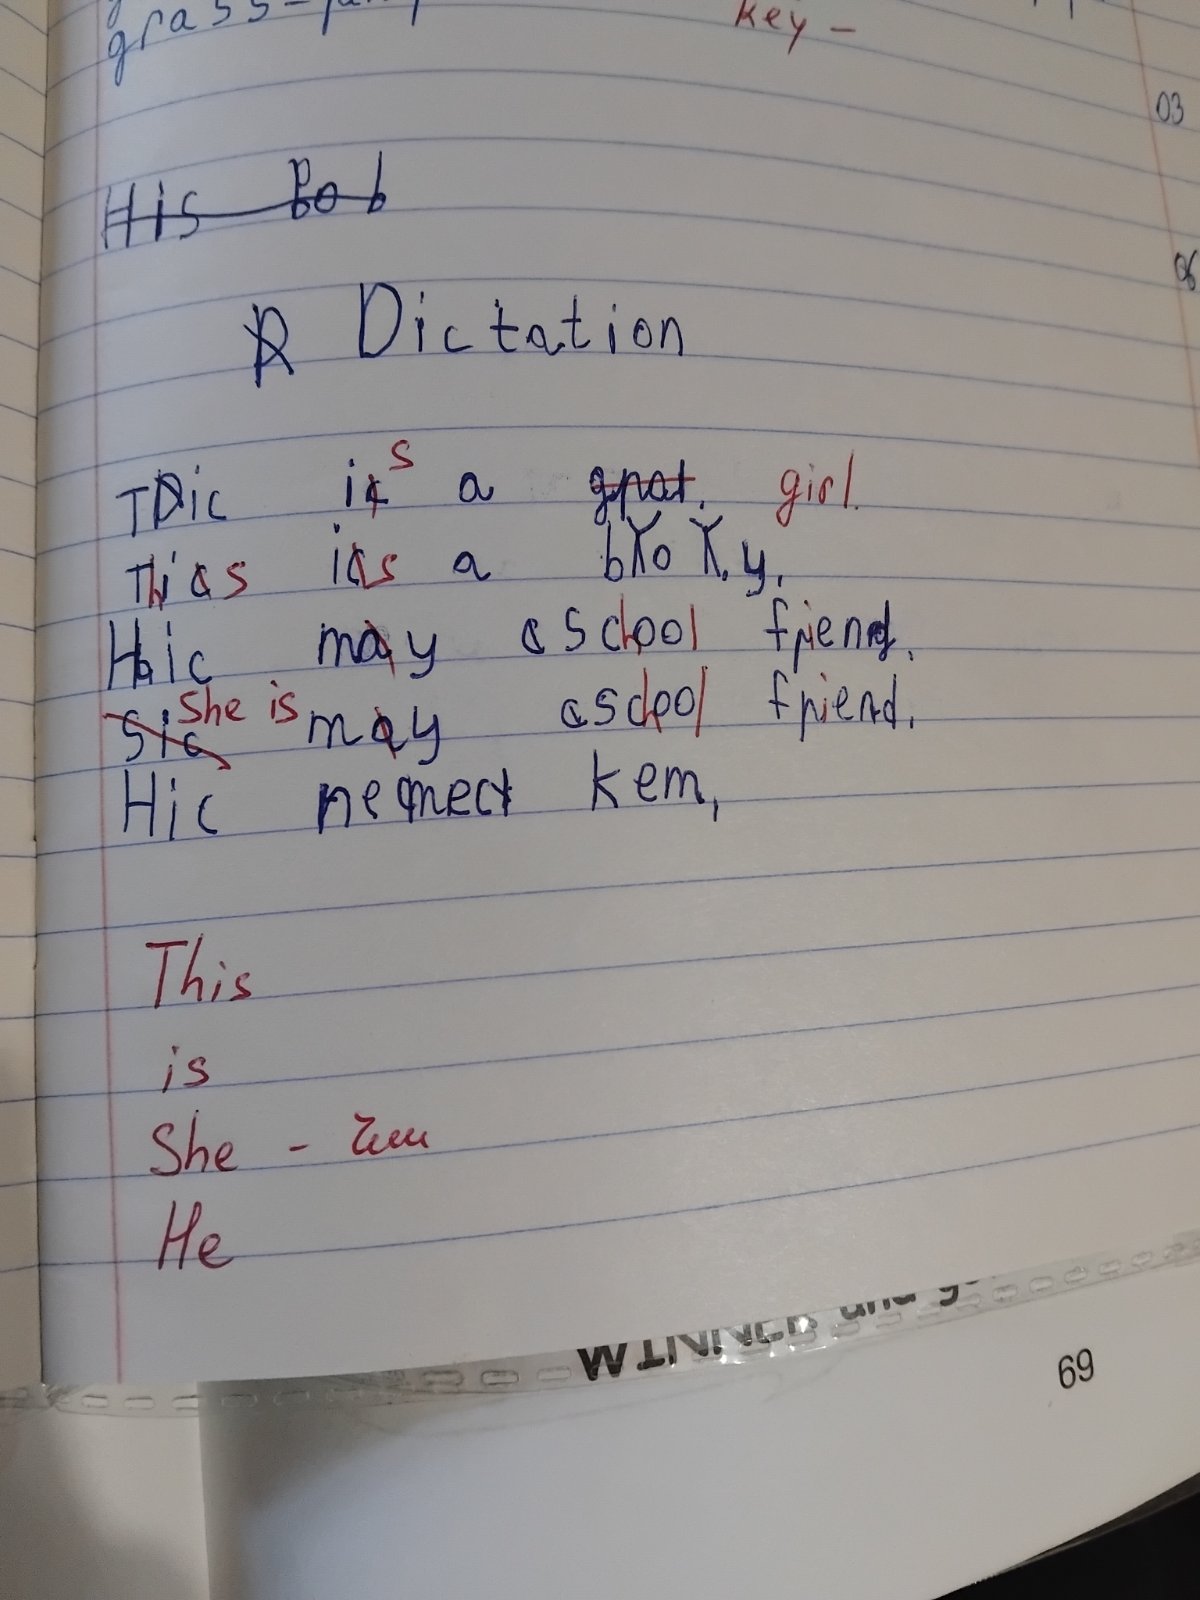 grass-
key -
03
His Bob
06
Dictation
THic is a gpat. girl.
This is a boy.
Hic may cschool friend.
Sic She is may cschool friend.
Hic nemect kem,
This
is
She -
He
WINNER and
69